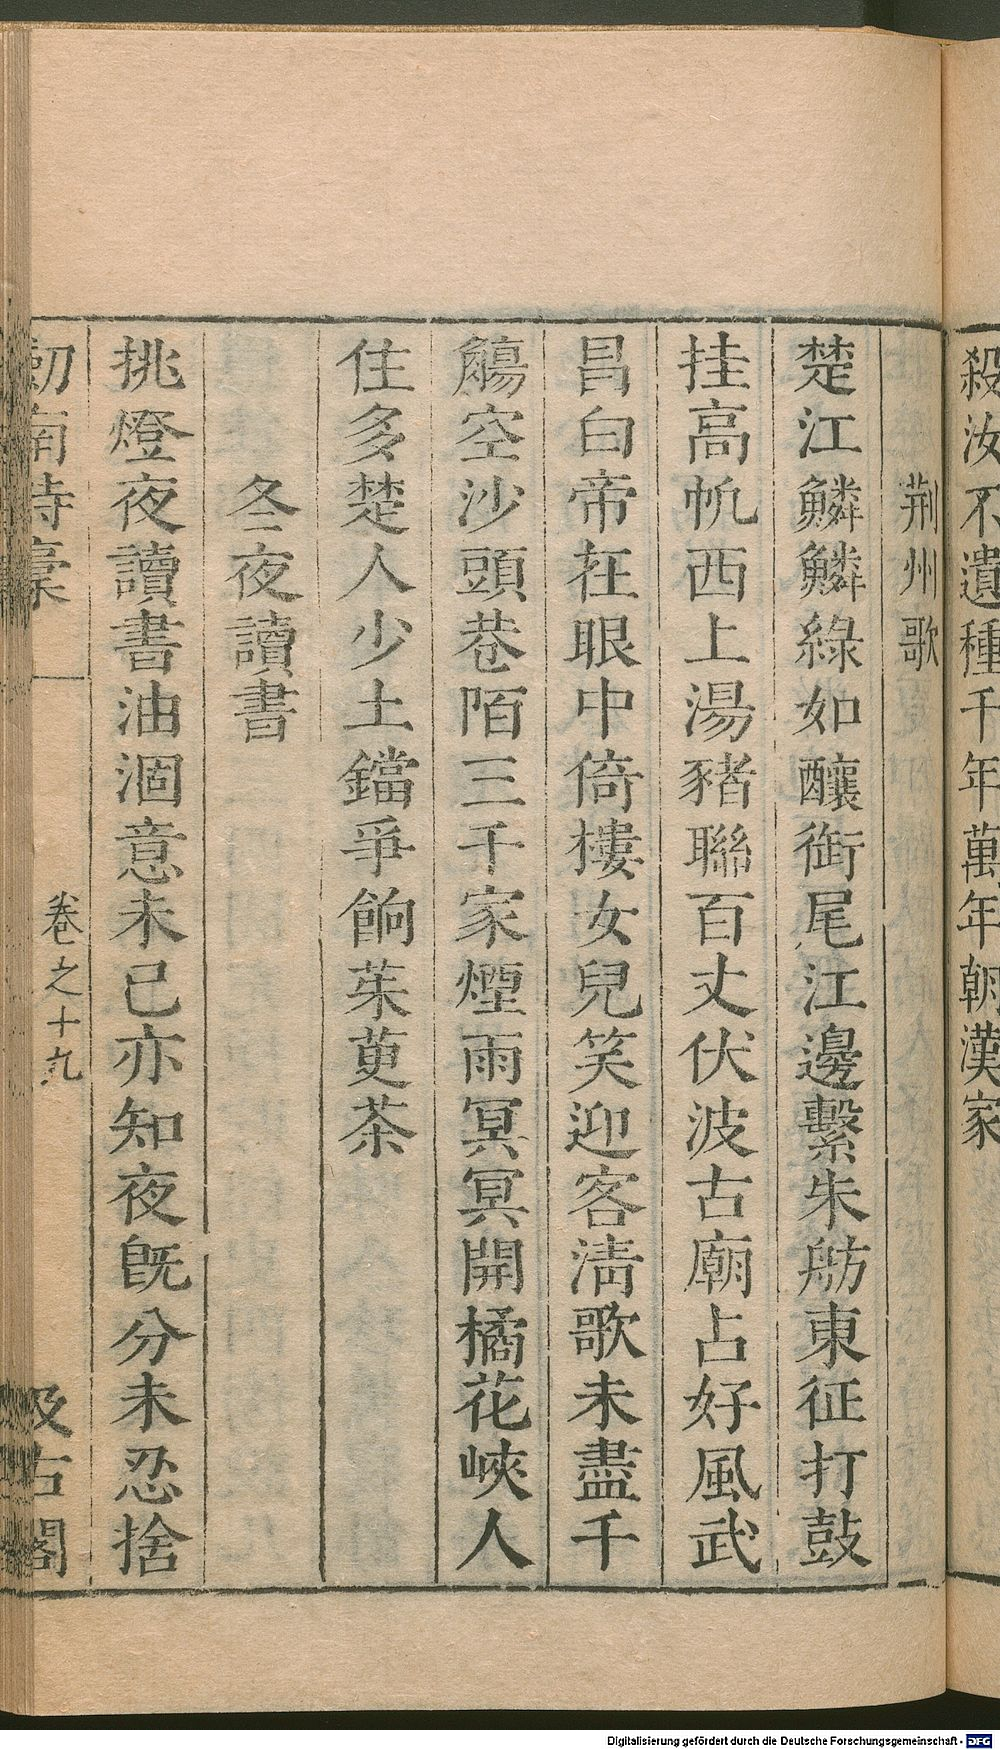 殺汝不遺種千年萬年朝漢家
荆州歌
楚江鱗鱗綠如釀銜尾江邊繫朱舫東征打鼓
挂高帆西上湯豬聯百丈伏波古廟占好風武
昌白帝在眼中倚樓女兒笑迎客淸歌未盡千
觴空沙頭巷陌三千家煙雨冥冥開橘花峽人
住多楚人少土鐺爭餉茱萸茶
冬夜讀書
挑燈夜讀書油涸意未已亦知夜旣分未忍捨
劎南詩稾
卷之十九
汲古閣
Digitalisierung gefördert durch die Deutsche Forschungsgemeinschaft - DFG